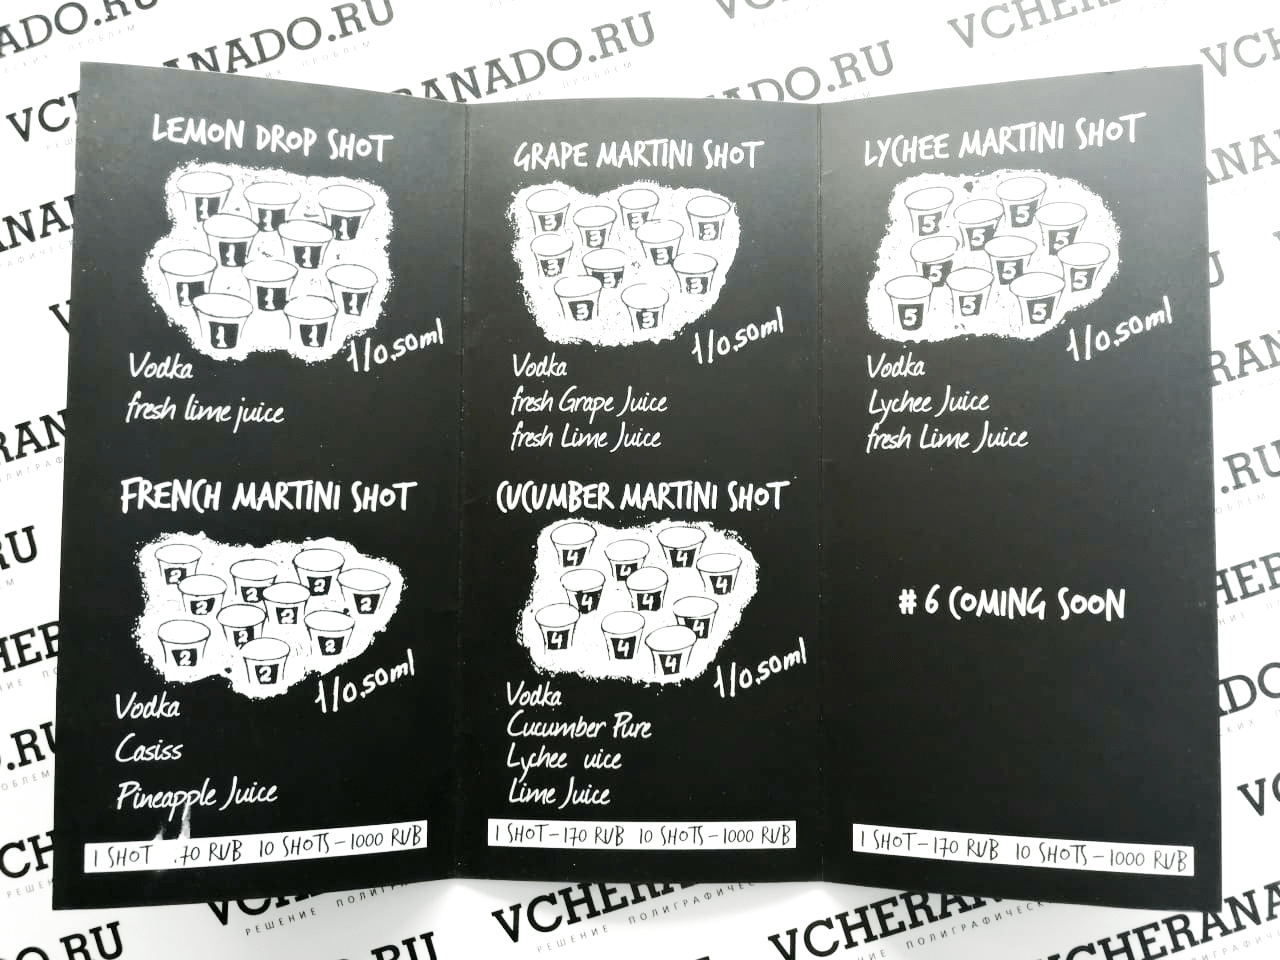 LEMON DROP SHOT
1/0.50ml
Vodka
fresh lime juice
FRENCH MARTINI SHOT
1/0.50ml
Vodka
Casiss
Pineapple Juice
1 SHOT .70 RUB 10 SHOTS – 1000 RUB
GRAPE MARTINI SHOT
1/0.50ml
Vodka
fresh Grape Juice
fresh Lime Juice
CUCUMBER MARTINI SHOT
1/0.50ml
Vodka
Cucumber Pure
Lychee uice
Lime Juice
1 SHOT – 170 RUB 10 SHOTS – 1000 RUB
LYCHEE MARTINI SHOT
1/0.50ml
Vodka
Lychee Juice
fresh Lime Juice
# 6 COMING SOON
1 SHOT – 170 RUB 10 SHOTS – 1000 RUB
VCHERANADO.RU
РЕШЕНИЕ ПОЛИГРАФИЧЕСКИХ ПРОБЛЕМ